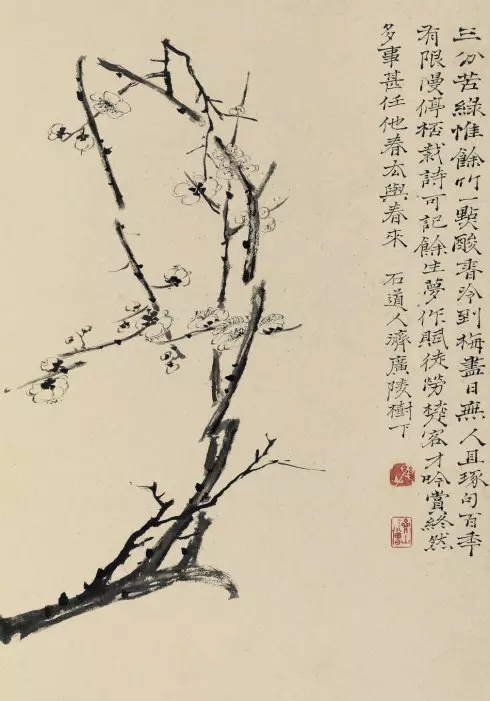 三分苦綠惟餘竹一點酸香冷到梅盡日無人且琢句百年
有限漫停桮裁詩可記餘生夢作賦徒勞楚客才吟賞終然
多事甚任他春去與春來
石道人濟廣陵樹下